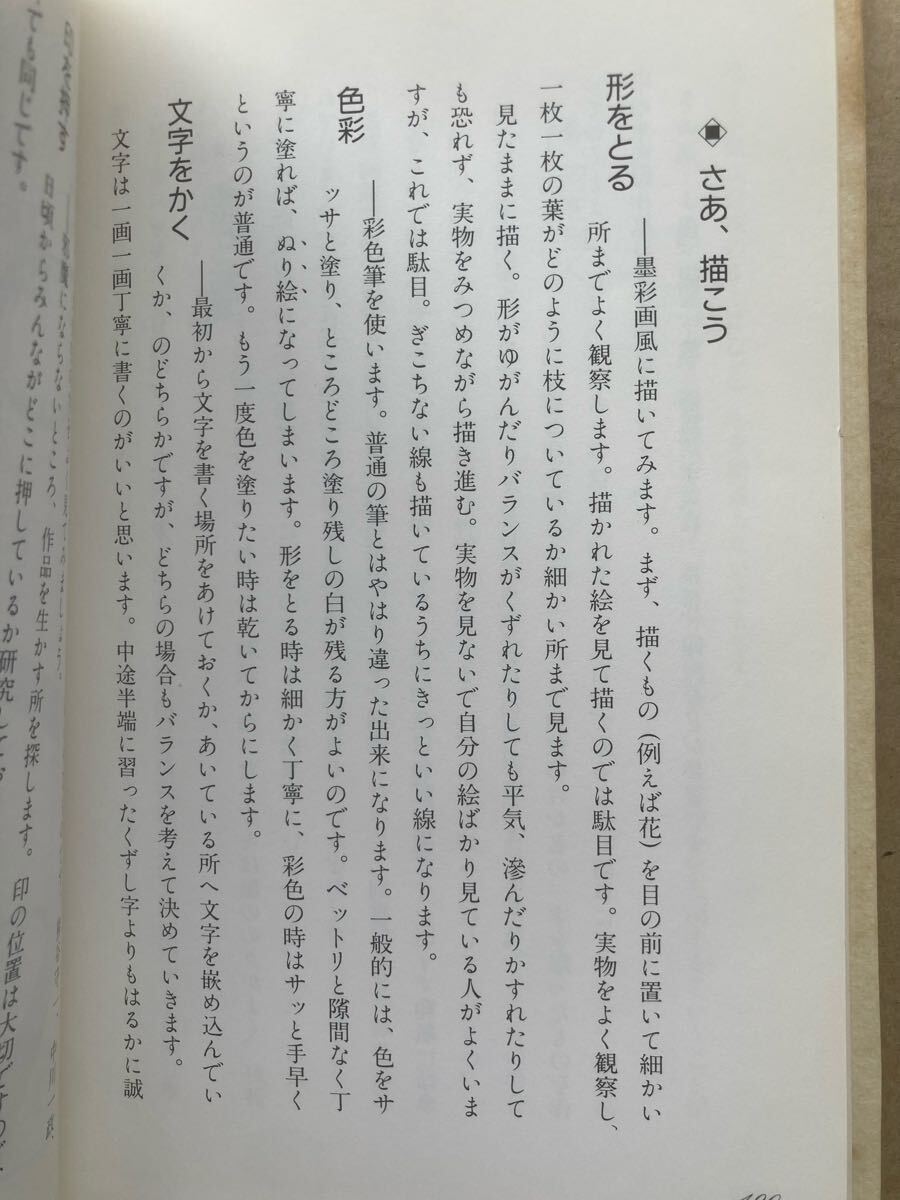 ◈ さあ、描こう
形をとる
――墨彩画風に描いてみます。まず、描くもの(例えば花)を目の前に置いて細かい
所までよく観察します。描かれた絵を見て描くのでは駄目です。実物をよく観察し、
一枚一枚の葉がどのように枝についているか細かい所まで見ます。
見たままに描く。形がゆがんだりバランスがくずれたりしても平気、滲んだりかすれたりして
も恐れず、実物をみつめながら描き進む。実物を見ないで自分の絵ばかり見ている人がよくいま
すが、これでは駄目。ぎこちない線も描いているうちにきっといい線になります。
色彩
――彩色筆を使います。普通の筆とはやはり違った出来になります。一般的には、色をサ
ッサと塗り、ところどころ塗り残しの白が残る方がよいのです。ベットリと隙間なく丁
寧に塗れば、ぬり絵になってしまいます。形をとる時は細かく丁寧に、彩色の時はサッと手早く
というのが普通です。もう一度色を塗りたい時は乾いてからにします。
文字をかく
――最初から文字を書く場所をあけておくか、あいている所へ文字を嵌め込んでい
くか、のどちらかですが、どちらの場合もバランスを考えて決めていきます。
文字は一画一画丁寧に書くのがいいと思います。中途半端に習ったくずし字よりもはるかに誠
にならないところ、作品を生かす所を探します。印の位置は大切ですので、
日頃からみんながどこに押しているか研究して
ても同じです。